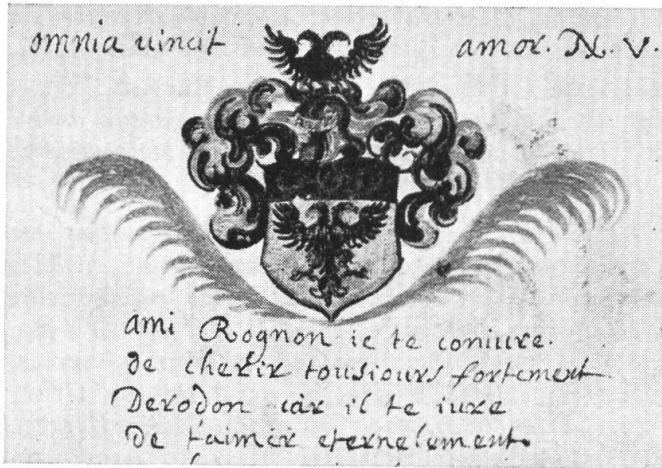 omnia uincit amor. N. V.
ami Rognon ie te coniure.
de cherir tousiours fortement
Derodon car il te iure
de t'aimer eternelement.